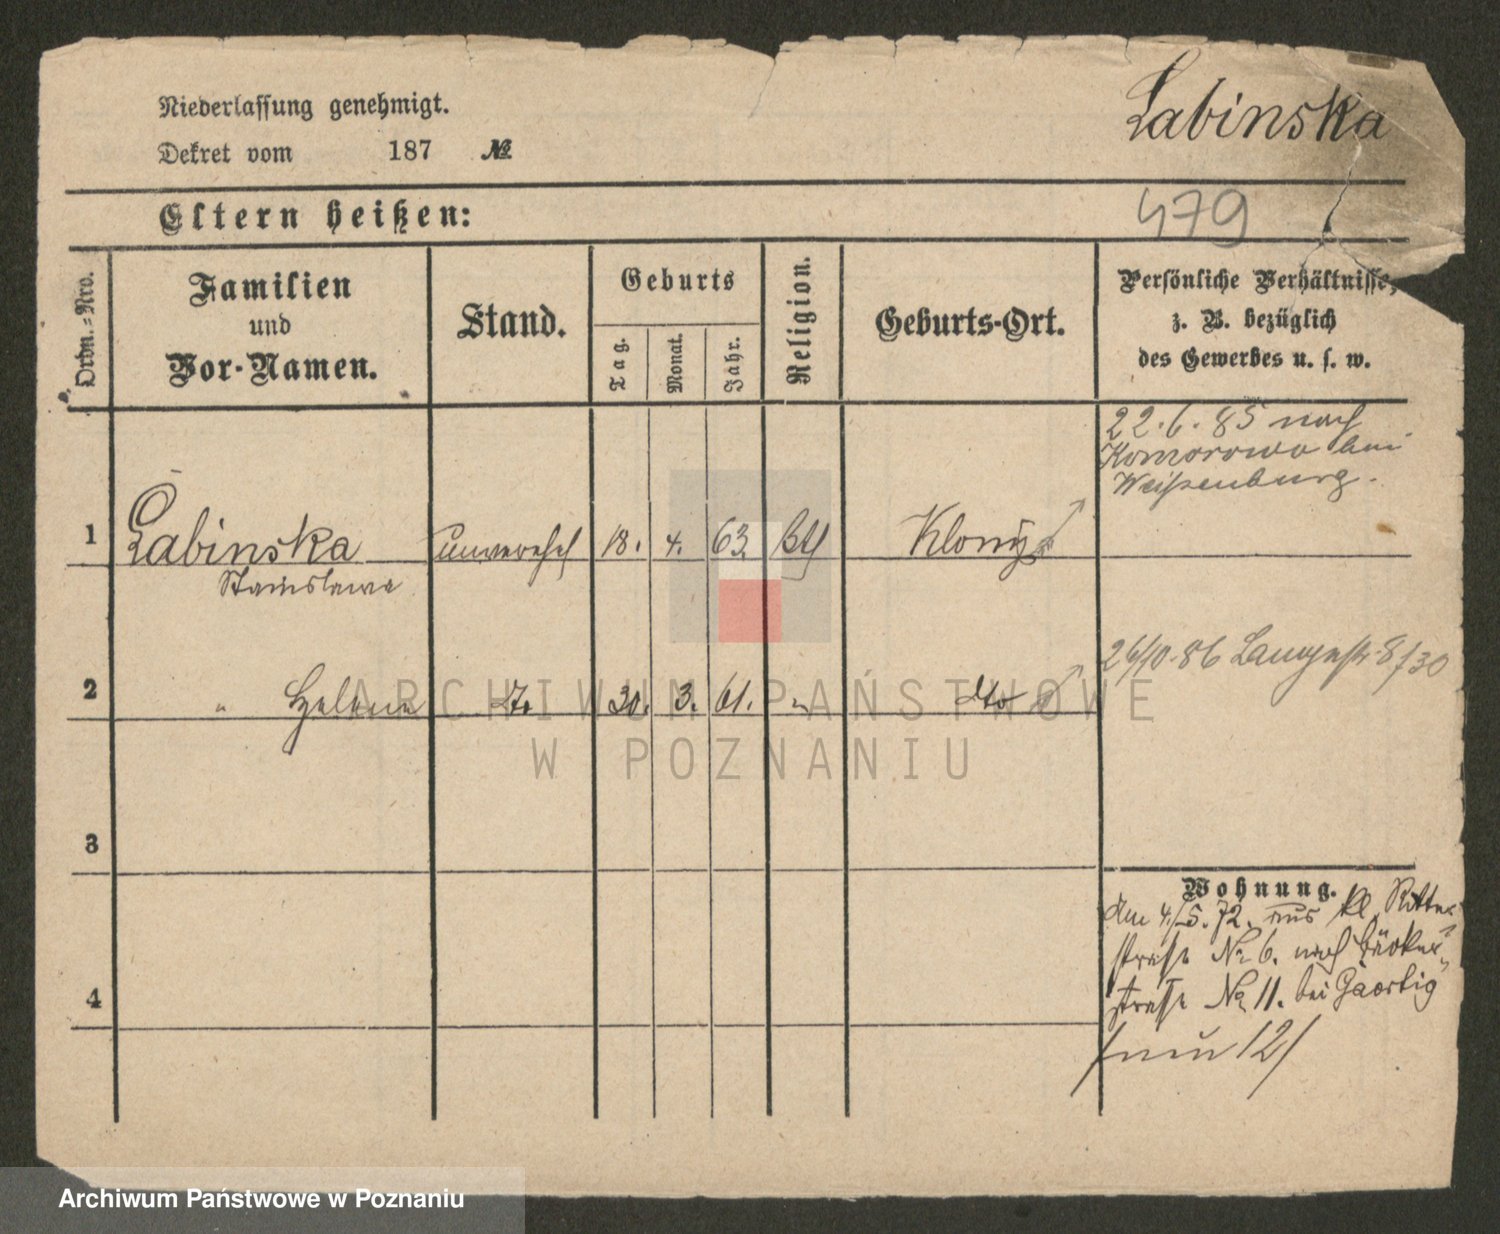 Niederlassung genehmigt.
Labinska
Dekret vom 187 №
479
Eltern heißen:
Ordn.-Nro.
Familien
und
Vor-Namen.
Stand.
Geburts
Tag.
Monat.
Jahr.
Religion.
Geburts-Ort.
Persönliche Verhältnisse,
z. B. bezüglich
des Gewerbes u. s. w.
22.6.85 nach
Komorowo bei
Weißenburg.
1 Labinska unverehel 18. 4. 63
Stanislawa
26/10.86 Langestr. 8/30
2 " Helene do 30. 3. 61. " dto
3
4
Wohnung.
Am 4/5.72. aus kl. Ritter
straße No 6. nach Bäcker
straße No 11. bei
/neu 12/
ARCHIWUM PAŃSTWOWE
W POZNANIU
Archiwum Państwowe w Poznaniu